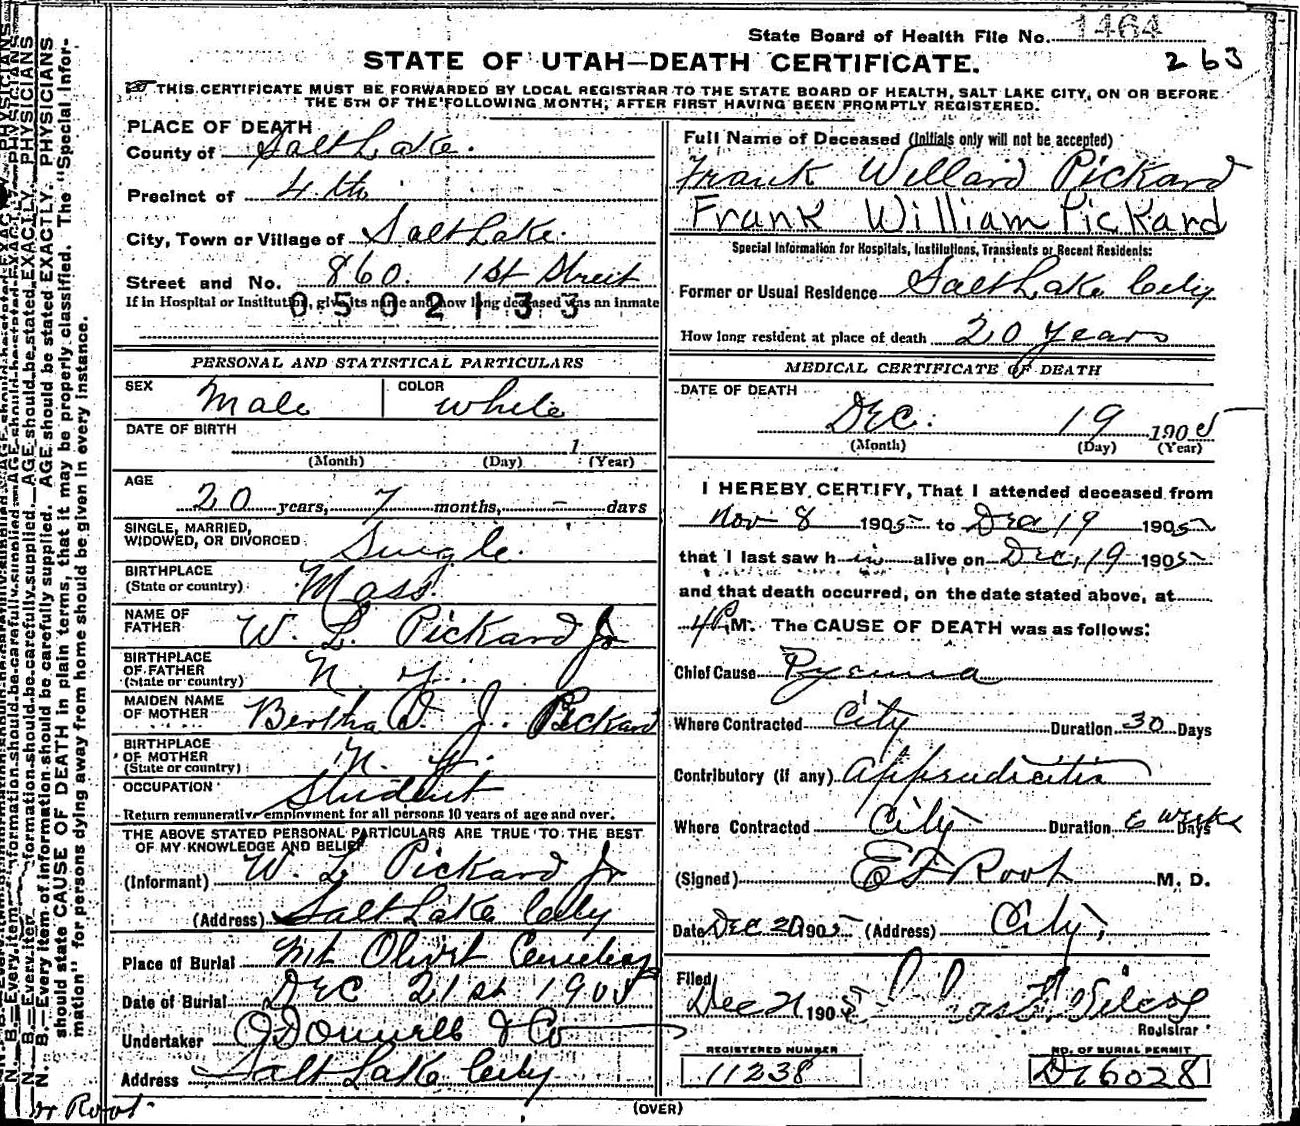 State Board of Health File No. 1464
263
STATE OF UTAH—DEATH CERTIFICATE.
THIS CERTIFICATE MUST BE FORWARDED BY LOCAL REGISTRAR TO THE STATE BOARD OF HEALTH, SALT LAKE CITY, ON OR BEFORE
THE 5TH OF THE FOLLOWING MONTH, AFTER FIRST HAVING BEEN PROMPTLY REGISTERED.
PLACE OF DEATH
County of Salt Lake.
Precinct of 4th
City, Town or Village of Salt Lake.
Street and No. 860. 1st Street
If in Hospital or Institution, give its name and how long deceased was an inmate
0502133
PERSONAL AND STATISTICAL PARTICULARS
SEX Male COLOR White
DATE OF BIRTH
1
(Month) (Day) (Year)
AGE
20 years, 7 months, - days
SINGLE, MARRIED,
WIDOWED, OR DIVORCED Single.
BIRTHPLACE
(State or country) Mass.
NAME OF
FATHER W. L. Pickard Jr
BIRTHPLACE
OF FATHER
(State or country) N. Y.
MAIDEN NAME
OF MOTHER Bertha D. J. Pickard
BIRTHPLACE
OF MOTHER
(State or country) N. Y.
OCCUPATION Student
Return remunerative employment for all persons 10 years of age and over.
THE ABOVE STATED PERSONAL PARTICULARS ARE TRUE TO THE BEST
OF MY KNOWLEDGE AND BELIEF
(Informant) W. L. Pickard Jr
(Address) Salt Lake City
Place of Burial Mt Olivet Cemetery
Date of Burial DEC 21st 1905
Undertaker O'Donnell & Co
Address Salt Lake City
Full Name of Deceased (Initials only will not be accepted)
Frank Willard Pickard
Frank William Pickard
Special Information for Hospitals, Institutions, Transients or Recent Residents:
Former or Usual Residence Salt Lake City
How long resident at place of death 20 years
MEDICAL CERTIFICATE OF DEATH
DATE OF DEATH
DEC. 19 1905
(Month) (Day) (Year)
I HEREBY CERTIFY, That I attended deceased from
Nov 8 1905 to Dec 19 1905
that I last saw him alive on Dec. 19 1905
and that death occurred, on the date stated above, at
4 P.M. The CAUSE OF DEATH was as follows:
Chief Cause Pyemia
Where Contracted City Duration 30 Days
Contributory (if any) Appendicitis
Where Contracted City Duration 6 weeks Days
(Signed) E F Root M. D.
Date Dec 20 1905 (Address) City,
Filed
Dec 21 1905
Registrar
REGISTERED NUMBER
11238
NO. OF BURIAL PERMIT
D 16028
(OVER)
N. B.—Every item of information should be carefully supplied. AGE should be stated EXACTLY. PHYSICIANS
should state CAUSE OF DEATH in plain terms, that it may be properly classified. The "Special Infor-
mation" for persons dying away from home should be given in every instance.
Dr Root